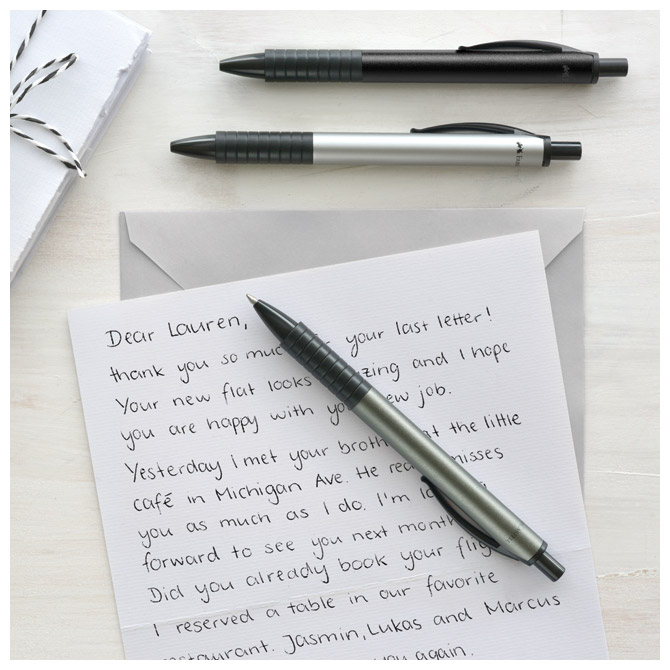 Dear Lauren,
thank you so your last letter!
Your new flat looks and I hope
you are happy with job.
Yesterday i met your at the little
café in Michigan Ave. He misses
you as much as I do. I'm
forward to see you next month
Did you already book your
I reserved a table in our favorite
Jasmin, Lukas and Marcus
you again.